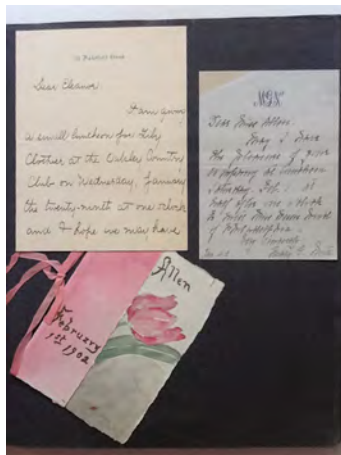 Dear Eleanor
I am giving
a small luncheon for Lily
at the Country
Club on Wednesday, January
the twenty-ninth at one o'clock
and I hope we may have
Dear Miss Allen.
May I have
the pleasure of your
company at luncheon
Saturday Feb. 1 at
half after one o'clock
to meet Miss
of Philadelphia.
Very sincerely
Allen
February
1st 1902